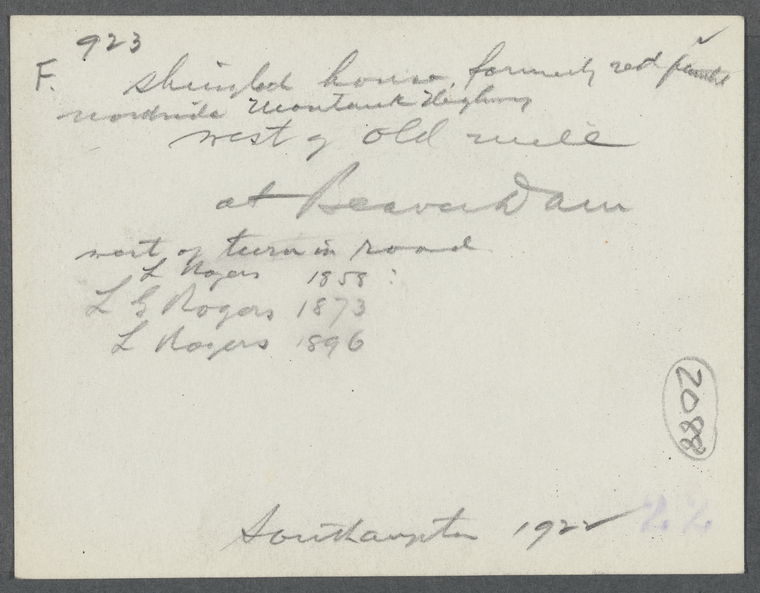 923
F. shingled house, formerly red painted
northside Montauk Highway
west of old mill
at Beaver Dam
west of turn in road
L Rogers 1858:
L G Rogers 1873
L Rogers 1896
2088
Southampton 1922
22